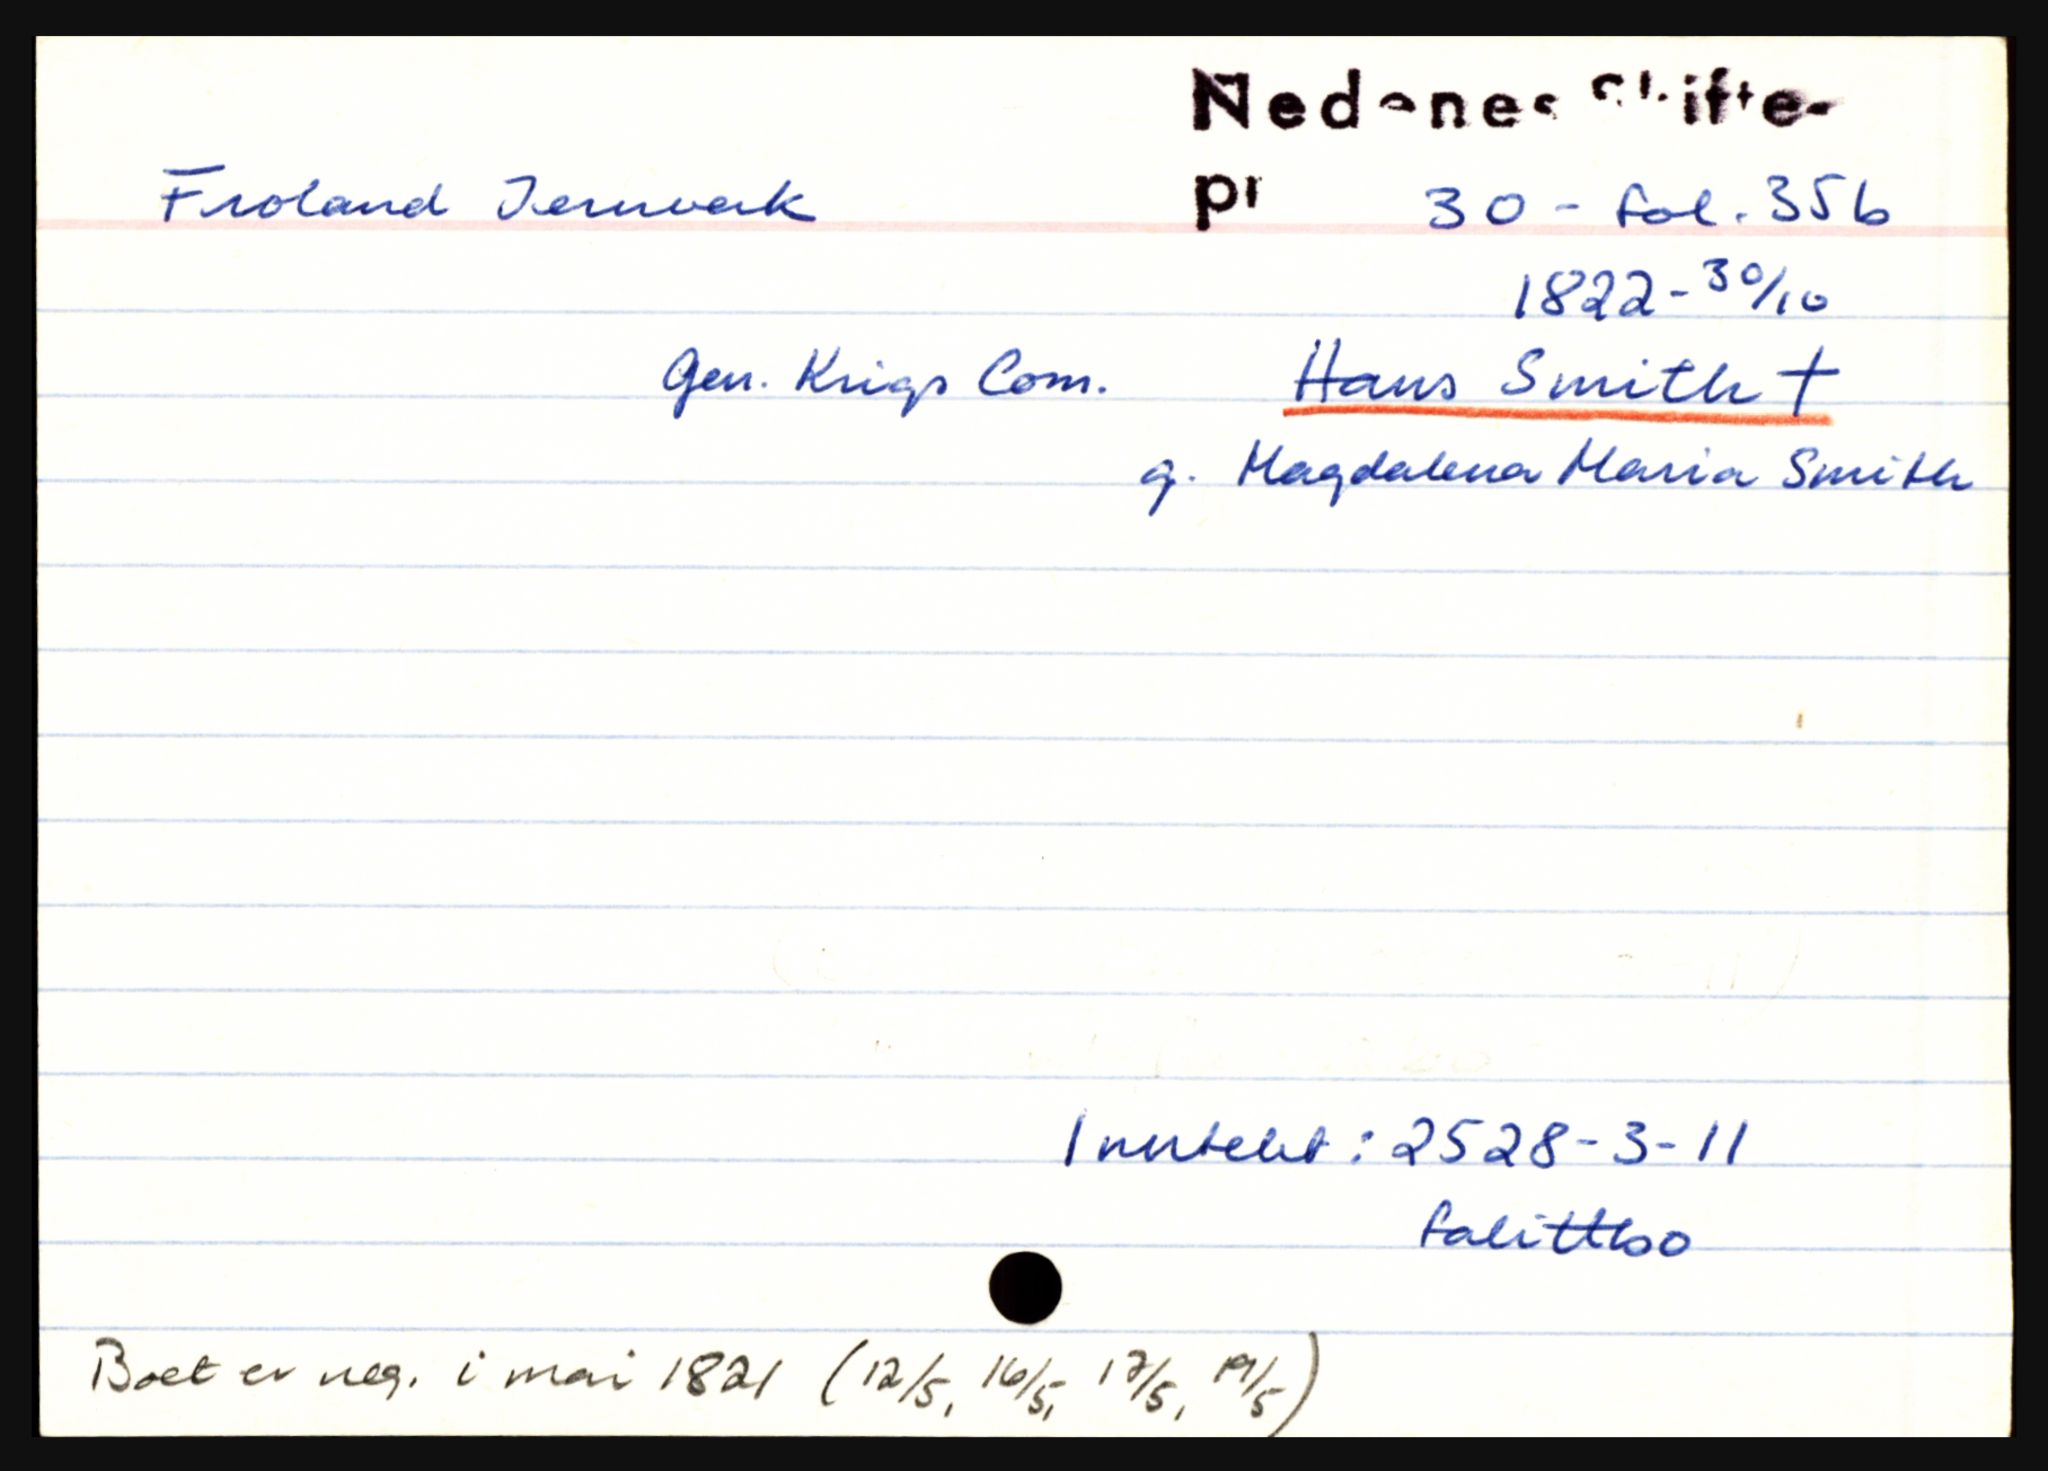 Nedenes Skifte-
Froland Jernverk pr 30 - fol. 35b
1822 - 30/10
Gen. Krigs Com. Hans Smith †
g. Magdalena Maria Smith
Inntekt: 2528-3-11
falittbo
Boet er reg. i mai 1821 (12/5, 16/5, 17/5, 19/5)